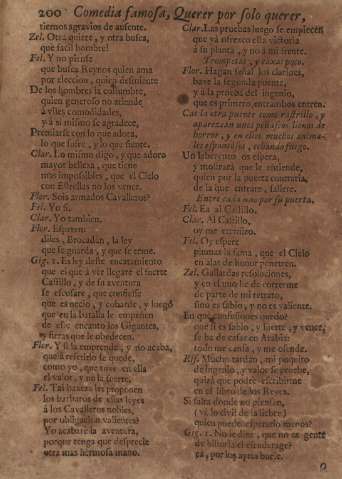 200 Comedia famosa, Querer por solo querer,
tiernos agravios de ausente.
Zel. Otra quiere, y otra busca,
que facil hombre!
Fel. Y no piense
que busca Reynos quien ama
por eleccion, quinçi desmiente
De los hombres la costumbre,
quien generoso no atiende
à viles comodidades,
y à si mismo se agradece,
Premiarse con lo que adora,
lo que sufre, y lo que siente.
Clar. Lo mismo digo, y que adoro
mayor belleza, que tiene
mas impossibles, que el Cielo
con Estrellas no los vence.
Flor. Sois armados Cavalleros?
Fel. Yo si.
Clar. Yo tambien.
Flor. Esperen:
diles, Brocadan, la ley
que se guarda, y que se teme.
Gig. 1. Es ley deste encantamento
que el que à ver llegare el fuerte
Castillo, y de su aventura
se escusare, que confiesse
que es necio, y cobarde, y luego
que en la batalla le empeñen
de esse encanto los Gigantes,
y fieras que le obedecen.
Flor. Y si la emprende, y no acaba,
que à referirlo se quede,
como yo, que tuve en ella
el valor, y no la suerte.
Fel. Tal baxeza les proponen
los barbaros de essas leyes
à los Cavalleros nobles,
por obligarlos valientes?
Yo acabarè la aventura,
porque tenga que desprecie
otra mas hermosa mano.
Clar. Las pruebas luego se empiecen
que ya ofresco esta victoria
à su planta, y no à mi frente.
Trompetas, y caxas poco.
Flor. Hagan señal los clarines,
baxe la segunda puente,
y à la prueba del ingenio,
que es primero, entrambos entren.
Cae la otra puente como rastrillo, y
aparezcan unos peñascos llenos de
horror, y en ellos muchos anima-
les espantosos, echando fuego.
Un laberynto os espera,
y mostrarà que le entiende,
quien por la puerta contraria,
de la que entrare, saliere.
Entre cada uno por su puerta.
Fel. Ea al Castillo.
Clar. Al Castillo,
oy me eternizo.
Fel. Oy espere
plumas la fama, que el Cielo
en alas de honor penetren.
Zel. Gallardas resoluciones,
y en el uno he de correrme
de parte de mi retrato,
sino es sabio, y no es valiente.
En que confusiones quedo?
que si es sabio, y fuerte, y vence,
se ha de casar en Arabia:
todo me cansa, y me ofende.
Rif. Mucho tardan, mi poquito
de ingenio, y valor se pruebe,
quizà que podrè escribirme
en el libro de los Reyes.
Si salta donde no piensan,
( vè lo civil de la liebre )
quien puede esperarlo menos?
Gig. 1. No le dixe, que no es gente
de historia el escuderage?
ea, por los ayres buele.